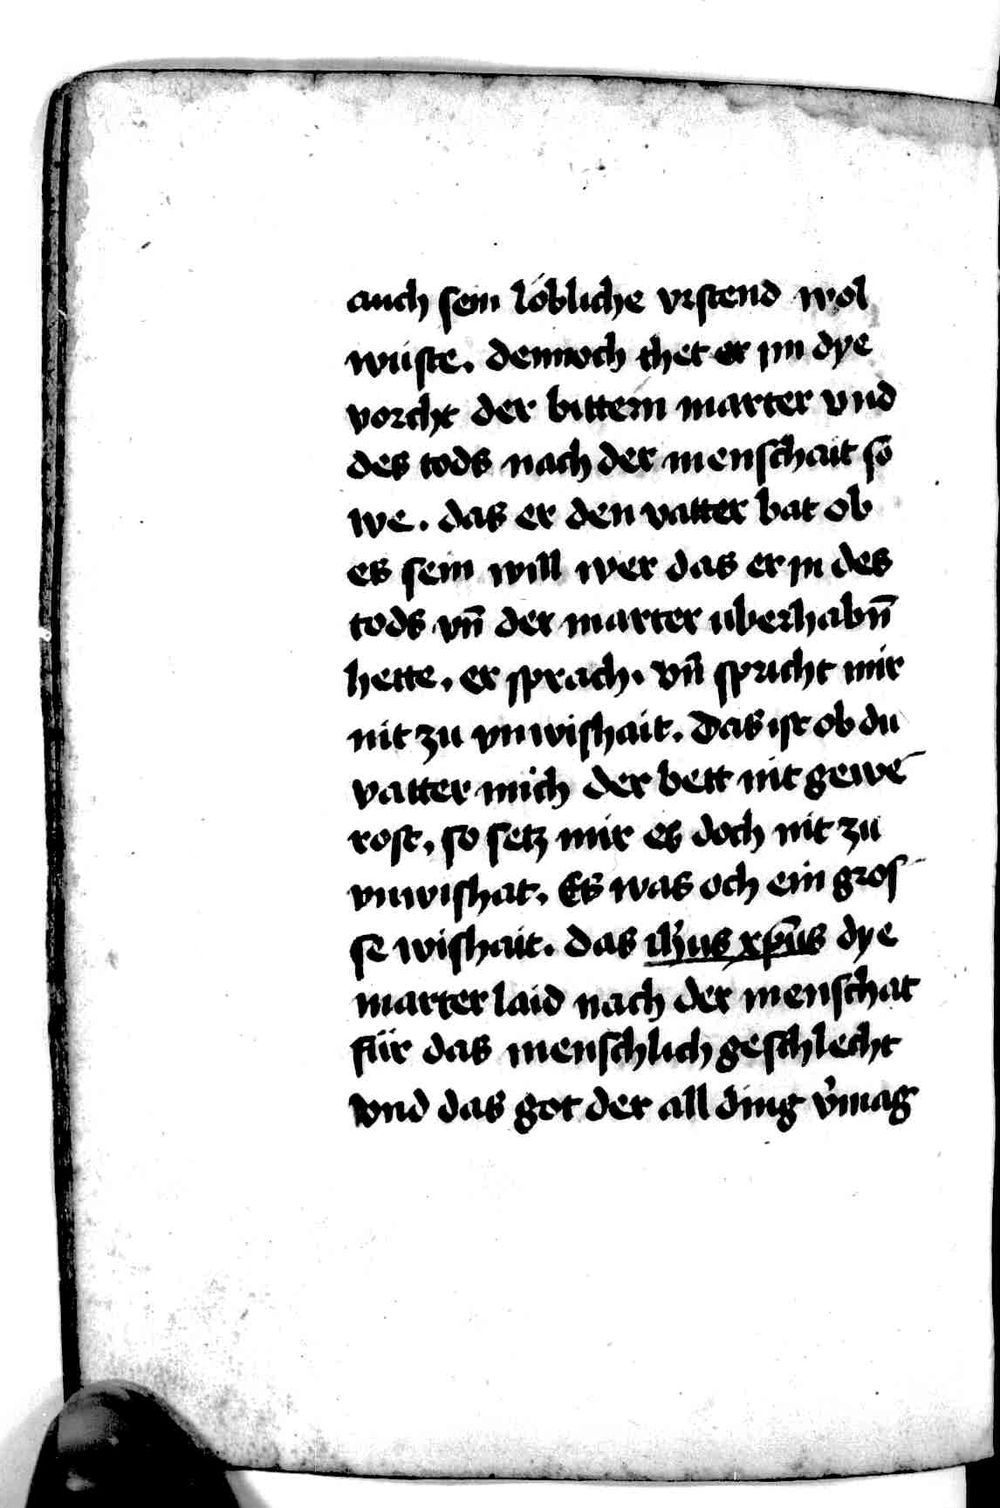 auch sein löbliche vrstend wol
wüste. dennoch thet er im dye
vorcht der bittern marter vnd
des tods nach der menschait so
we. das er den vatter bat ob
es sein will wer das er in des
tods vn̄ der marter uberhabn̄
hette. er sprach. vn̄ spricht mir
nit zu vnwishait. Das ist ob du
vatter mich der bett nit gewe
rost, so setz mir es doch nit zu
vnwishat. Es was och ein gros
se wishait. das ih̄us xp̄us dye
marter laid nach der menschat
für das menschlich geschlecht
vnd das got der all ding v̓mag